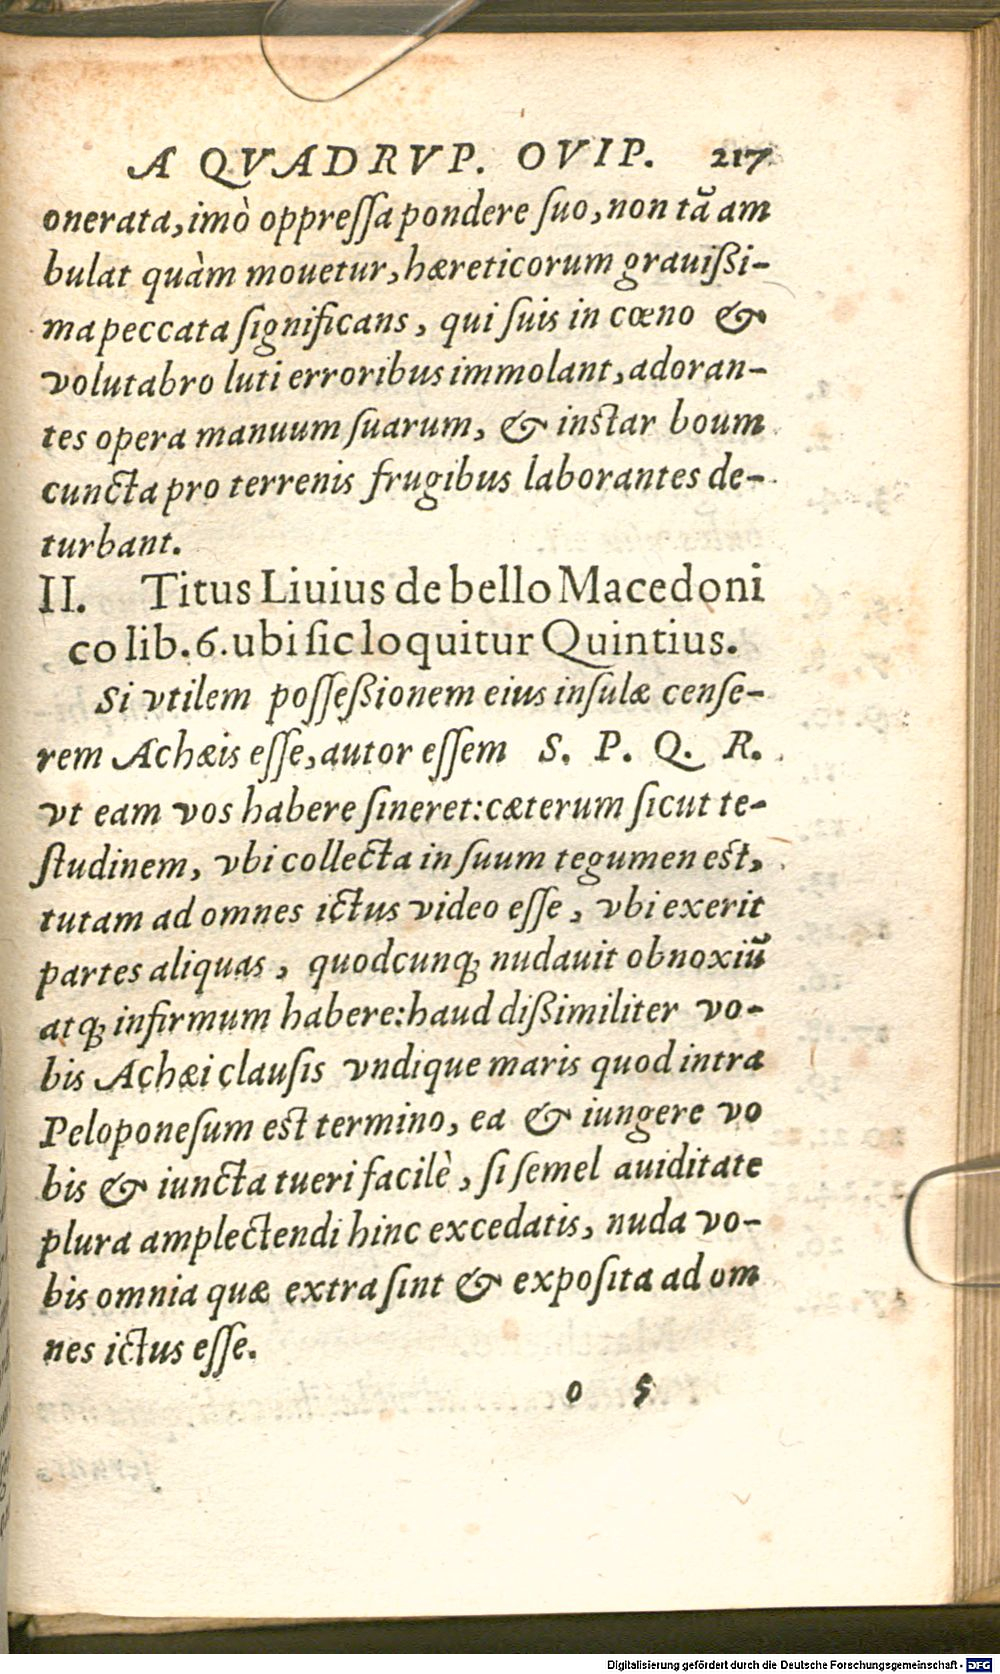 A QVADRVP. OVIP. 217
onerata, imò oppreſſa pondere ſuo, non tā am
bulat quàm mouetur, hæreticorum grauißi-
ma peccata ſignificans, qui ſuis in cœno &
volutabro luti erroribus immolant, adoran-
tes opera manuum ſuarum, & inſtar boum
cuncta pro terrenis frugibus laborantes de-
turbant.
II. Titus Liuius de bello Macedoni
co lib. 6. ubi ſic loquitur Quintius.
Si vtilem poſſeßionem eius inſulæ cenſe-
rem Achæis eſſe, autor eſſem S. P. Q. R.
vt eam vos habere ſineret: cæterum ſicut te-
ſtudinem, vbi collecta in ſuum tegumen eſt,
tutam ad omnes ictus video eſſe, vbi exerit
partes aliquas, quodcunq; nudauit obnoxiū
atq; infirmum habere: haud dißimiliter vo-
bis Achæi clauſis vndique maris quod intra
Peloponeſum eſt termino, ea & iungere vo
bis & iuncta tueri facilè, ſi ſemel auiditate
plura amplectendi hinc excedatis, nuda vo-
bis omnia quæ extra ſint & expoſita ad om
nes ictus eſſe.
o 5
Digitalisierung gefördert durch die Deutsche Forschungsgemeinschaft - DFG